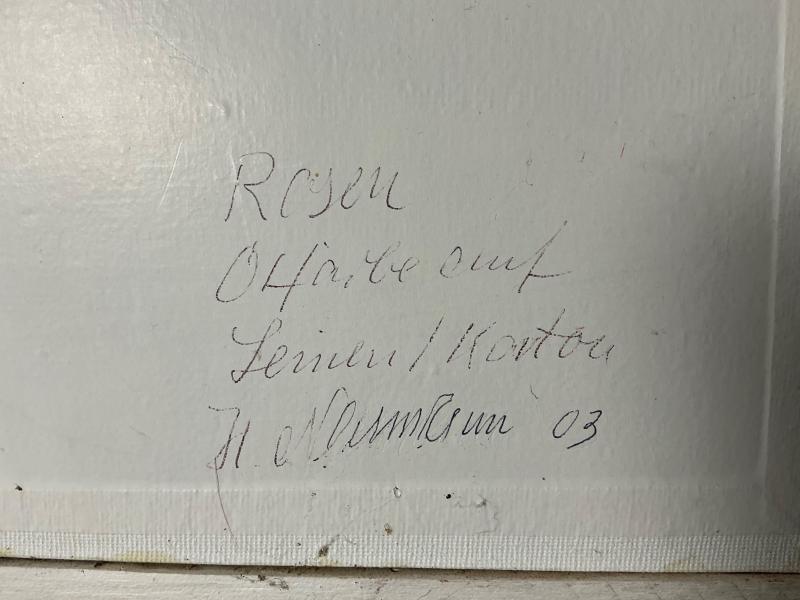 Rosen
Ölfarbe auf
Leinen/Karton
H. 03